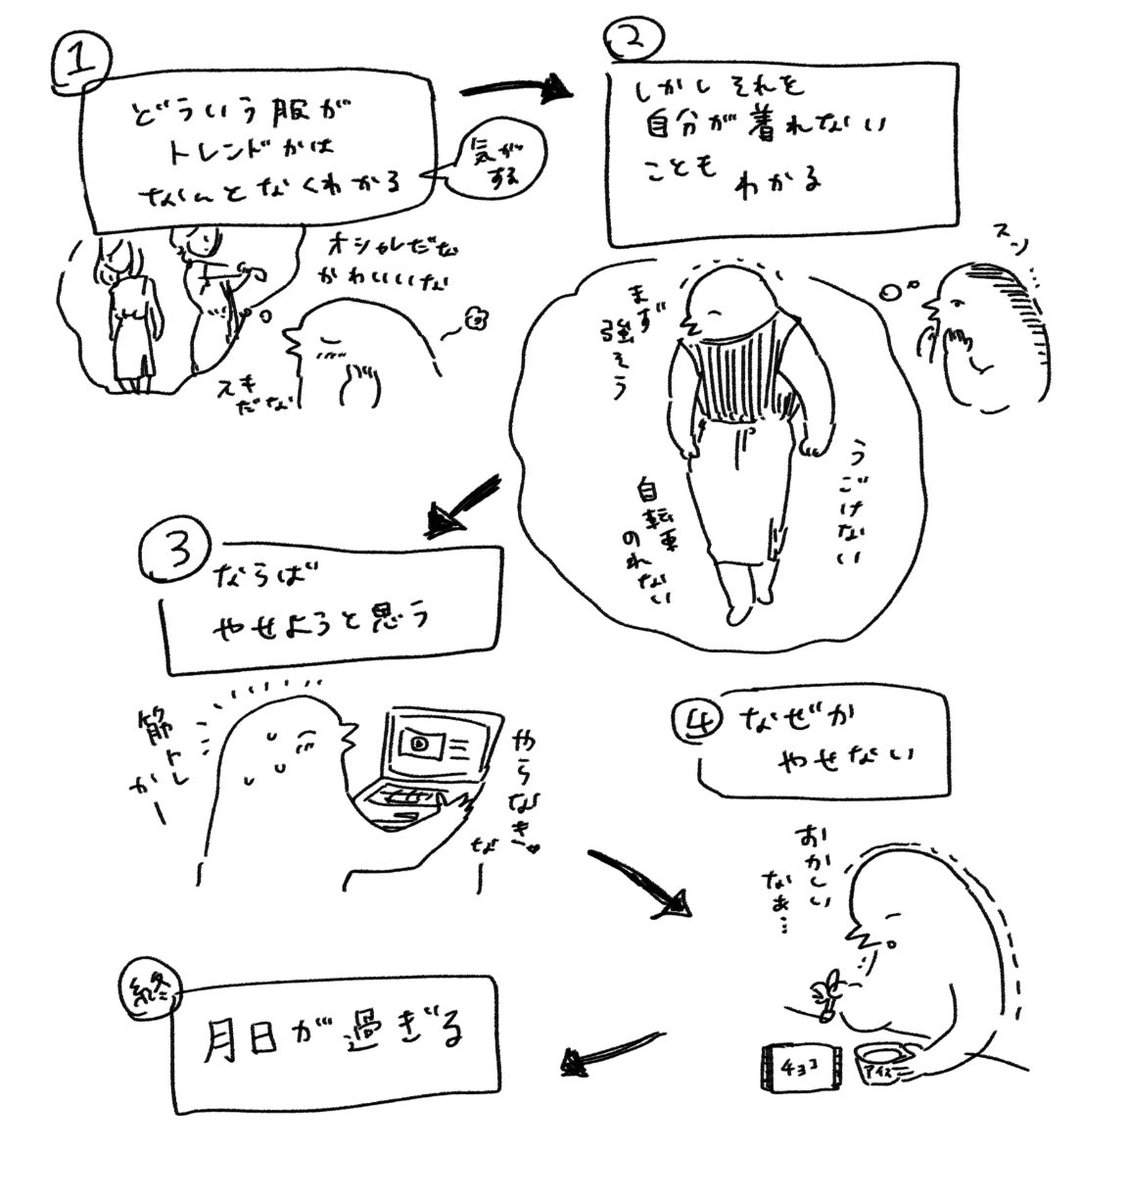 1
どういう服が
トレンドかは
なんとなくわかる
気が
する
オシャレだな
かわいいな
スキ
だな
2
しかしそれを
自分が着れない
ことも
わかる
スン…
まず
強そう
うごけない
自転車
のれない
3
ならば
やせようと思う
筋トレ
かー
やらなき
な
4
なぜか
やせない
おかしい
なぁ…
チョコ
アイス
終
月日が過ぎる